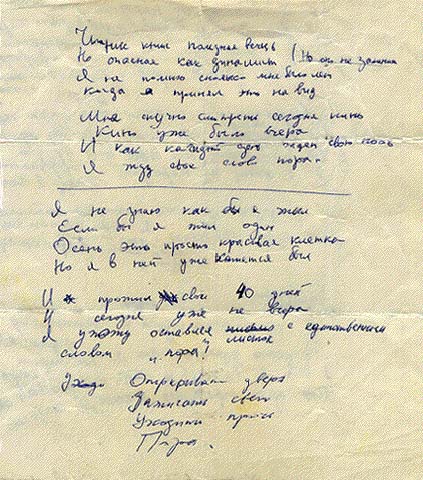 Чтение книг полезная вещь
Но опасная как динамит (Но оно не
Я не помню сколько мне было лет
Когда я принял это на вид
Мне скучно смотреть сегодня кино
Кино уже было вчера
И как каждый день ждет свою ночь
Я жду свое слово пора.
Я не знаю как бы я жил
Если бы я жил один
Осень это просто красивая клетка
Но я в ней уже кажется был
И прожил свои 40 дней
И сегодня уже не вчера
Я ухожу оставляя с единственным
словом „пора" листок
Открывать дверь
свет
Уходить прочь
Пора.